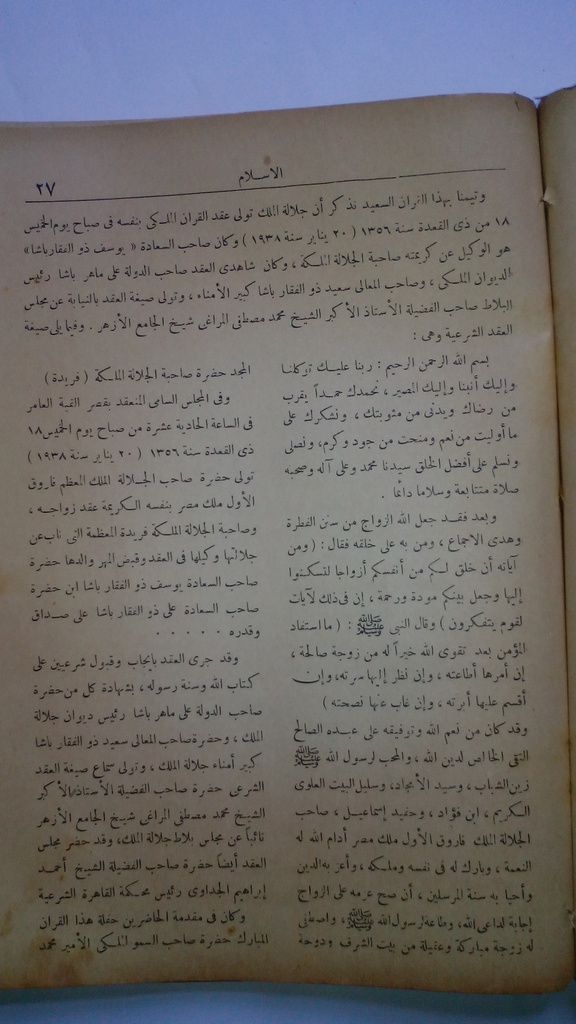 ٢٧
الاسلام
وتيمنا بهذا القران السعيد نذكر أن جلالة الملك تولى عقد القران الملكى بنفسه فى صباح يوم الخميس
١٨ من ذى القعدة سنة ١٣٥٦ ( ٢٠ يناير سنة ١٩٣٨ ) وكان صاحب السعادة « يوسف ذو الفقار باشا »
هو الوكيل عن كريمته صاحبة الجلالة الملكة ، وكان شاهدى العقد صاحب الدولة على ماهر باشا رئيس
الديوان الملكى ، وصاحب المعالى سعيد ذو الفقار باشا كبير الأمناء ، وتولى صيغة العقد بالنيابة عن مجلس
البلاط صاحب الفضيلة الأستاذ الأكبر الشيخ محمد مصطفى المراغى شيخ الجامع الأزهر . وفيما يلى صيغة
العقد الشرعية وهى :
بسم الله الرحمن الرحيم : ربنا عليك توكلنا
وإليك أنبنا وإليك المصير ، نحمدك حمداً يقرب
من رضاك ويدنى من مثوبتك ، ونشكرك على
ما أوليت من نعم ومنحت من جود وكرم، ونصلى
ونسلم على أفضل الخلق سيدنا محمد وعلى آله وصحبه
صلاة متتابعة وسلاما دائما .
وبعد فقد جعل الله الزواج من سنن الفطرة
وهدى الاجماع ، ومن به على خلقه فقال : ( ومن
آياته أن خلق لكم من أنفسكم أزواجا لتسكنوا
إليها وجعل بينكم مودة ورحمة ، إن فى ذلك لآيات
لقوم يتفكرون ) وقال النبى ﷺ : ( ما استفاد
المؤمن بعد تقوى الله خيراً له من زوجة صالحة ،
إن أمرها أطاعته ، وإن نظر إليها سرته، وإن
أقسم عليها أبرته ، وإن غاب عنها نصحته )
وقد كان من نعم الله وتوفيقه على عبده الصالح
التقى الخالص لدين الله ، والمحب لرسول الله ﷺ
زين الشباب ، وسيد الأمجاد ، وسليل البيت العلوى
الكريم ، ابن فؤاد ، وحفيد إسماعيل ، صاحب
الجلالة الملك فاروق الأول ملك مصر أدام الله له
النعمة ، وبارك له فى نفسه وملكه ، وأعز به الدين
وأحيا به سنة المرسلين ، أن صح عزمه على الزواج
إجابة لداعى الله، وطاعة لرسول الله ﷺ ، واصطفى
له زوجة مباركة وعقيلة من بيت الشرف ودوحة
المجد حضرة صاحبة الجلالة الملكة ( فريدة )
وفى المجلس السامى المنعقد بقصر القبة العامر
فى الساعة الحادية عشرة من صباح يوم الخميس ١٨
ذى القعدة سنة ١٣٥٦ ( ٢٠ يناير سنة ١٩٣٨ )
تولى حضرة صاحب الجلالة الملك المعظم فاروق
الأول ملك مصر بنفسه الكريمة عقد زواجه ،
وصاحبة الجلالة الملكة فريدة المعظمة التى ناب عن
جلالتها وكيلها فى العقد وقبض المهر والدها حضرة
صاحب السعادة يوسف ذو الفقار باشا ابن حضرة
صاحب السعادة على ذو الفقار باشا على صداق
وقدره . . . . .
وقد جرى العقد بإيجاب وقبول شرعيين على
كتاب الله وسنة رسوله ، بشهادة كل من حضرة
صاحب الدولة على ماهر باشا رئيس ديوان جلالة
الملك ، وحضرة صاحب المعالى سعيد ذو الفقار باشا
كبير أمناء جلالة الملك ، وتولى سماع صيغة العقد
الشرعى حضرة صاحب الفضيلة الأستاذ الأكبر
الشيخ محمد مصطفى المراغى شيخ الجامع الأزهر
نائباً عن مجلس بلاط جلالة الملك، وقد حضر مجلس
العقد أيضاً حضرة صاحب الفضيلة الشيخ أحمد
إبراهيم الجداوى رئيس محكمة القاهرة الشرعية
وكان فى مقدمة الحاضرين حفلة هذا القران
المبارك حضرة صاحب السمو الملكى الأمير محمد